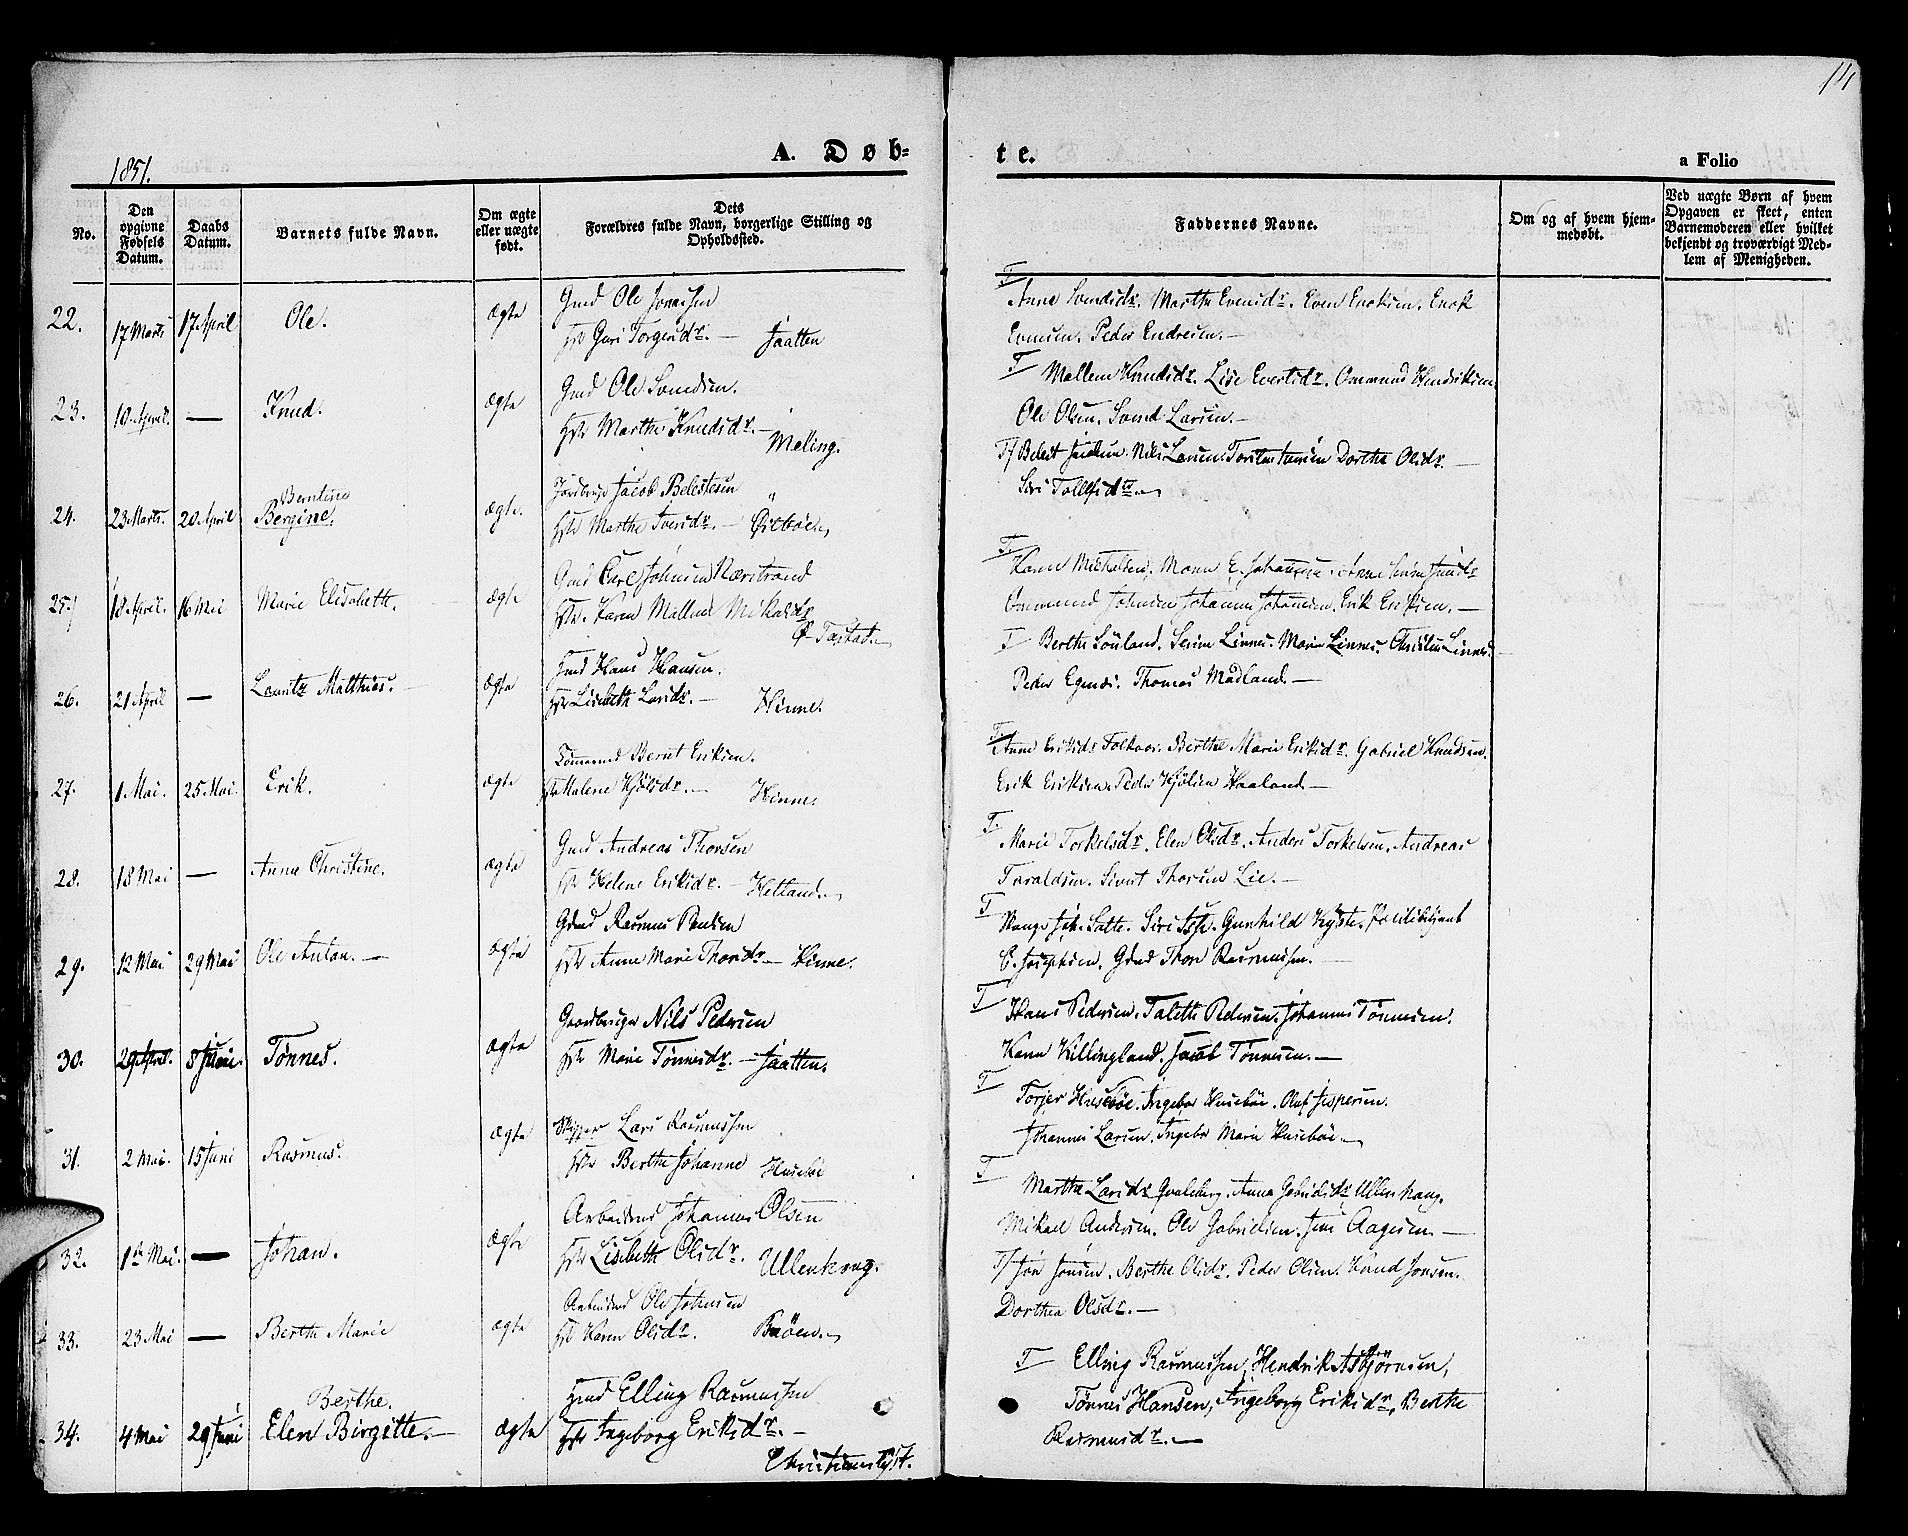 14
1851.
A. Døb-
te.
a Folio
No.
Den opgivne Fødsels Datum.
Daabs Datum.
Barnets fulde Navn.
Om ægte eller uægte født.
Dets Forældres fulde Navn, borgerlige Stilling og Opholdssted.
Faddernes Navne.
Om og af hvem hjemmedøbt.
Ved uægte Børn af hvem Opgaven er skeet, enten Barnemoderen eller hvilket bekjendt og troværdigt Medlem af Menigheden.
22. 17 Marts 17 April Ole. ægte Gmd Ole
Guri Jaatten
Anne Svendsdr. Marthe Evensdr. Even Enoksen. Enok
Evensen. Peder Endresen.
23. 10 April. — Knud. ægte Gmd Ole Svendsen.
Hst Marthe Knudsdr. — Meling.
Mallene Knudsdr. Lise Evertsdr. Ommund Hendriksen
Ole Olsen. Svend Larsen.
24. 23 Marts. 20 April Berntine
Bergine. ægte. Jacob Belestesen
Hst Marthe Iversdr. —
Belest Nils Larsen. Dorthe Olsdr. —
Siri
25. 18 April. 16 Mai Marie Elisabeth. ægte Gmd Carl Johnsen Nærstrand
Hst. Karen Mallene
Ø Tastad.
Ommund Johnsen Erik Eriksen. —
26. 21 April — Lauritz Matthias. ægte Hmd Hans Hansen.
Hst Lisebeth Larsdr. — Hinne.
T Berthe Sørland. Serine Linnes. Marie Linnes.
Peder Egenæs. Thomas Madland. —
27. 1 Mai. 25 Mai. Erik. ægte Bernt Eriksen.
Malene Kjølsdr. — Hinne.
Anne Eriksdr Berthe Marie Eriksdr. Gabriel Knudsen.
Erik Eriksen. Peder Kjølsen Haaland —
28. 18 Mai — Anne Christine. ægte Gmd Andreas Thorsen
Hst Helene Eriksdr. — Hetland.
T. Marie Torkelsdr. Elen Olsdr. Anders Torkelsen. Andreas
Taraldsen. Sivert Thorsen Lie. —
29. 12 Mai 29 Mai Ole Anton. — ægte Gdmd Rasmus
Hst Anne Marie Thorsdr — Hinne.
T Gunhild
Gdmd Thore Rasmussen. —
30. 29 April. 8 Juni. Tønnes. ægte Gaardbruger Nils Pedersen
Hst Marie Tønnesdr. — Jaatten.
T Hans Pedersen. Talette Pedersen. Johannes Tønnesen.
Killingland. Jacob Tønnesen. —
31. 2 Mai. 15 Juni Rasmus. ægte Skipper Lars Rasmussen
Hst Berthe Johanne Husebøe
T Torjer Husebøe. Ingebor Husebøe. Oluf Jespersen.
Johannes Larsen. Ingebor Marie Husebøe.
32. 1ste Mai. — Johan. ægte Arbeidsmd Johannes Olsen
Hst Lisebeth Olsdr. Ullenhaug.
T Marthe Larsdr Anna Gabrielsdr Ullenhaug.
Mikael Andersen. Ole Gabrielsen. Jens Aagesen. —
33. 23 Mai — Berthe Marie ægte Arbeidsmd Ole Johnsen
Hst Karen Olsdr. Brøen.
T/ Jon Jonsen. Berthe Olsdr. Peder Olsen. Knud Jonsen.
Dorthea Olsdr. —
34. 4 Mai 29 Juni Berthe.
Elen Birgitte. — ægte Hmd Elling Rasmussen
Hst Ingeborg Eriksdr. —
Christianslyst.
T Elling Rasmussen, Hendrik Asbjørnsen,
Tønnes Hansen, Ingeborg Eriksdr, Berthe
Rasmusdr. —